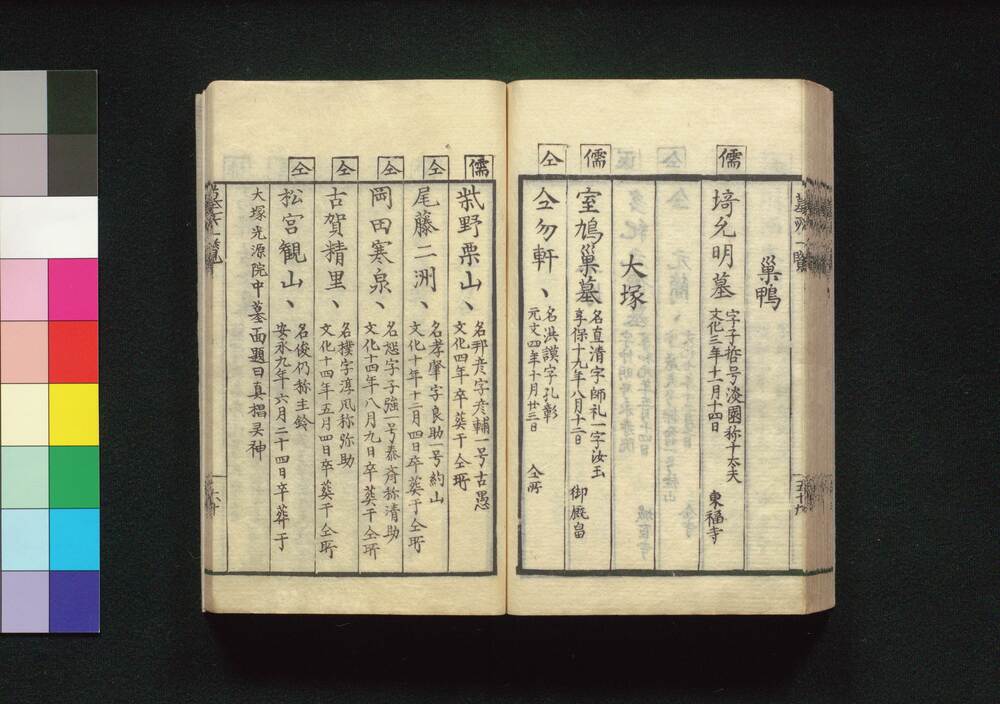 墓所一覧
巣鴨
儒
埼允明墓
字子哲号淡園称才太夫
文化三年十一月十四日
東福寺
大塚
儒
室鳩巣墓
名直清字師礼一字汝玉
享保十九年八月十二日
御殿畠
仝
仝勿軒、
名洪謨字孔彰
元文四年十月廿三日
仝所
五十九
儒
柴野栗山、
名邦彦字彦輔一号古愚
文化四年卒葬于仝所
仝
尾藤二洲、
名孝肇字良助一号約山
文化十年十二月四日卒葬于仝所
仝
岡田寒泉、
名恕字子強一号泰斎称清助
文化十四年八月九日卒葬于仝所
仝
古賀精里、
名樸字淳風称弥助
文化十四年五月四日卒葬于仝所
仝
松宮観山、
名俊仍称主鈴
安永九年六月二十四日卒葬于
大塚光源院中墓面題曰真楫灵神